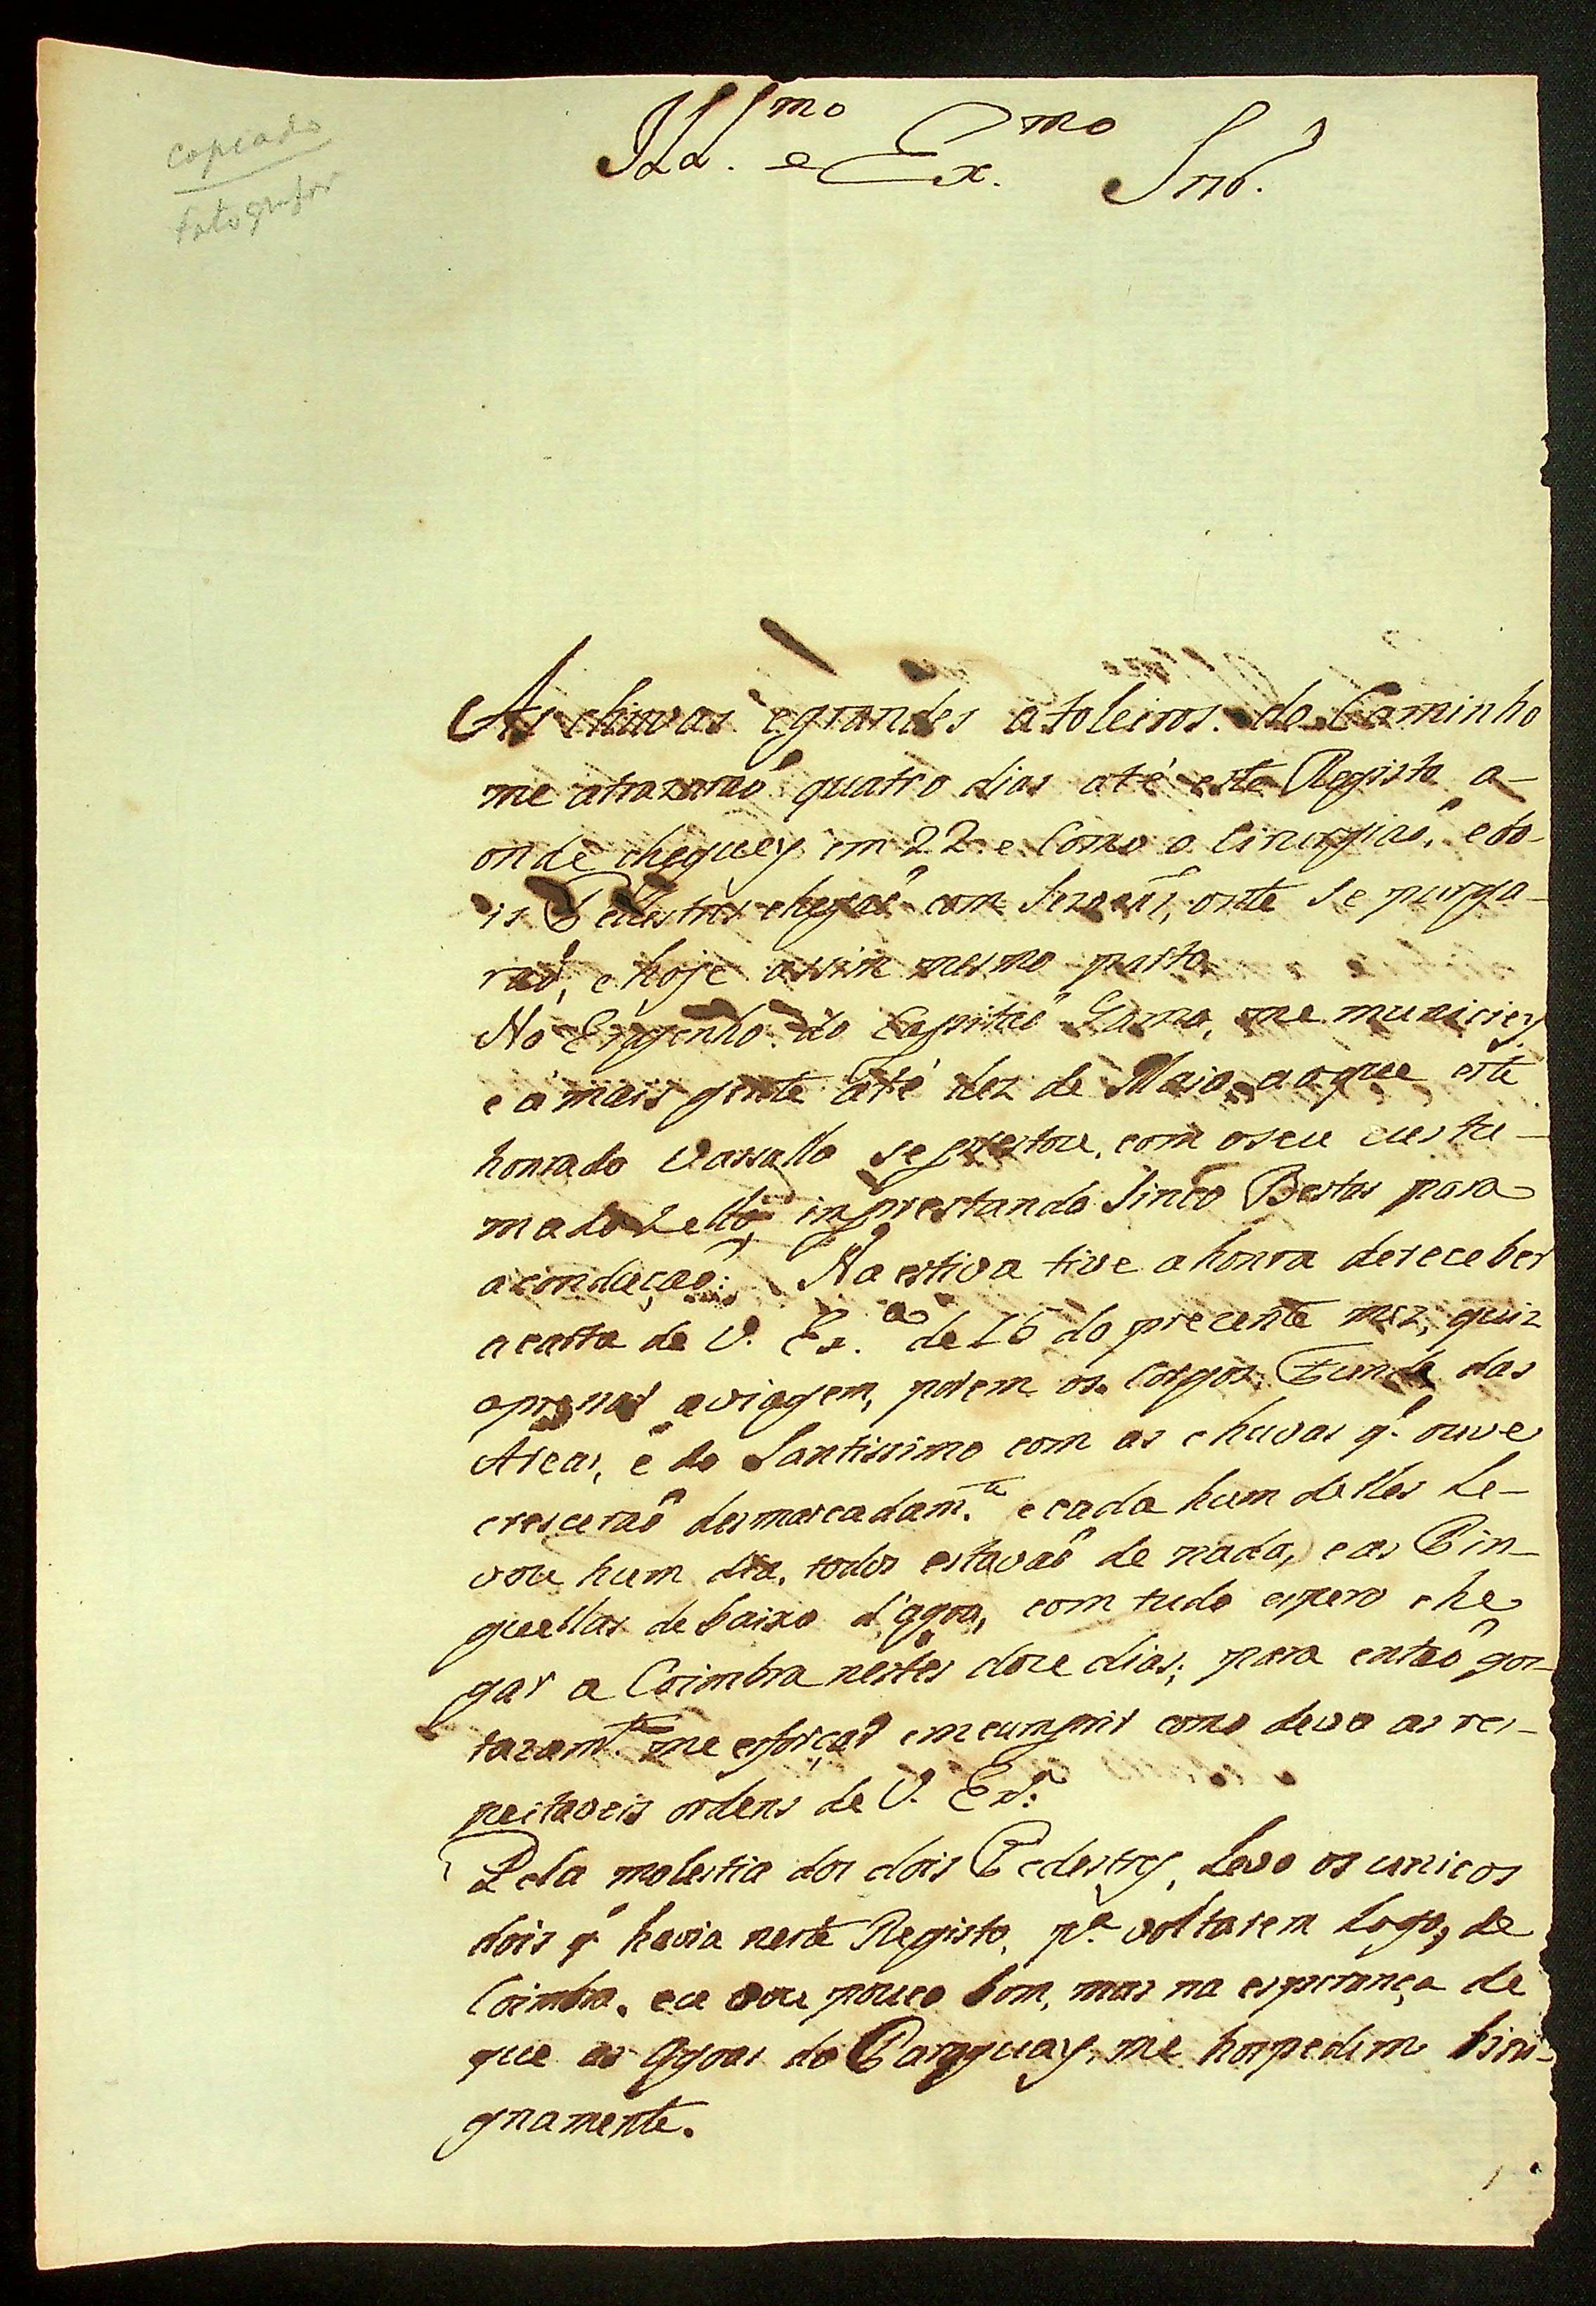 copiado
fotografar
Ill.mo e Ex.mo Snr.
As chuvas e grandes atoleiros do Caminho
me atrazaraõ quatro dias até este Registo a-
onde cheguey em 22 e Como o Cirurgiaõ, e do-
is Pedestres chegaõ com Sezoens, onte se purga-
raõ, e hoje assim mesmo parto.
No Engenho do Capitaõ Gama, me municiey
e a mais gente até dez de Maio, ao que este
honrado Vassallo se prestou, com o seu custu-
mado Zello, inprestando Sinco Bestas para
a conduçaõ: Na estiva tive a honra de receber
a carta de V. Ex.a de 16 do precente mez, quiz
apresar a viagem, porem os Corgos Funda das
Areas, e do Santissimo com as chuvas q. ouve
cresceraõ desmarcadam.te e cada hum delles Le-
vou hum dia, todos estavaõ de nado, e as Pin-
guellas de baixo d'agoa, com tudo espero che
gar a Coimbra nestes doze dias; para entaõ gos-
tozam.te me esforçar em cumprir como devo as res-
peitaveis ordens de V. Ex.a
Pela molestia dos dois Pedestres, Levo os unicos
dois q' havia neste Registo, p.a voltarem Logo, de
Coimbra. eu vou pouco bom, mas na esperança de
que as Agoas do Paraguay, me hospedem bini-
gnamente.